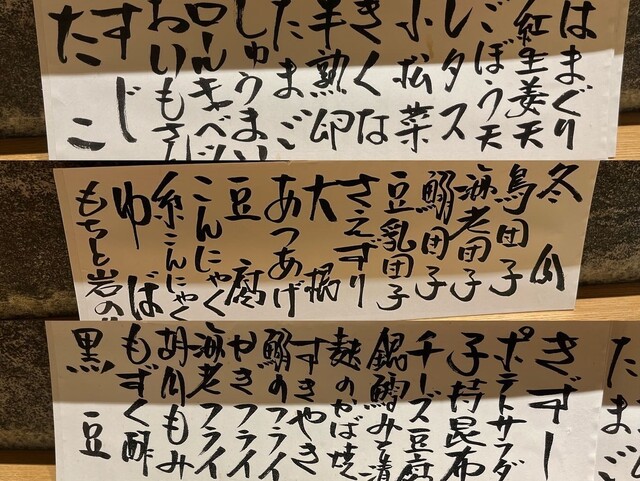 はまぐり
紅生姜天
ごぼう天
レタス
小松菜
きくな
半熟卵
たまご
しゅうまい
ロールキャベツ
おいもさん
すじ
たこ
冬瓜
鳥団子
海老団子
鰯団子
豆乳団子
さえずり
大根
あつあげ
豆腐
こんにゃく
糸こんにゃく
ゆば
もちと岩の
たまご
きずし
ポテトサラダ
子持昆布
チーズ豆腐
銀鱈みそ漬
麩のかば焼
すきやき
鰯のフライ
かきフライ
海老フライ
胡瓜もみ
もずく酢
黒豆